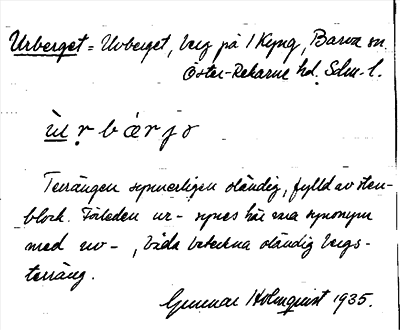 Urberget = Uvberget, berg på 1 Kyng, Barva sn
Öster-Rekarne hd. Sdm-l.
ùṛbærjɤ
Terrängen synnerligen oländig, fylld av sten-
block. Förleden ur- synes här vara synonym
med uv-, båda beteckna oländig bergs-
terräng.
Gunnar Holmquist 1935.